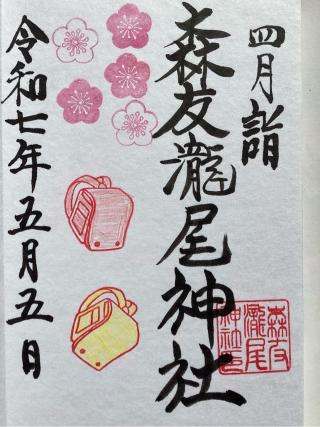 四月詣
森友瀧尾神社
森友
瀧尾
神社印
令和七年五月五日